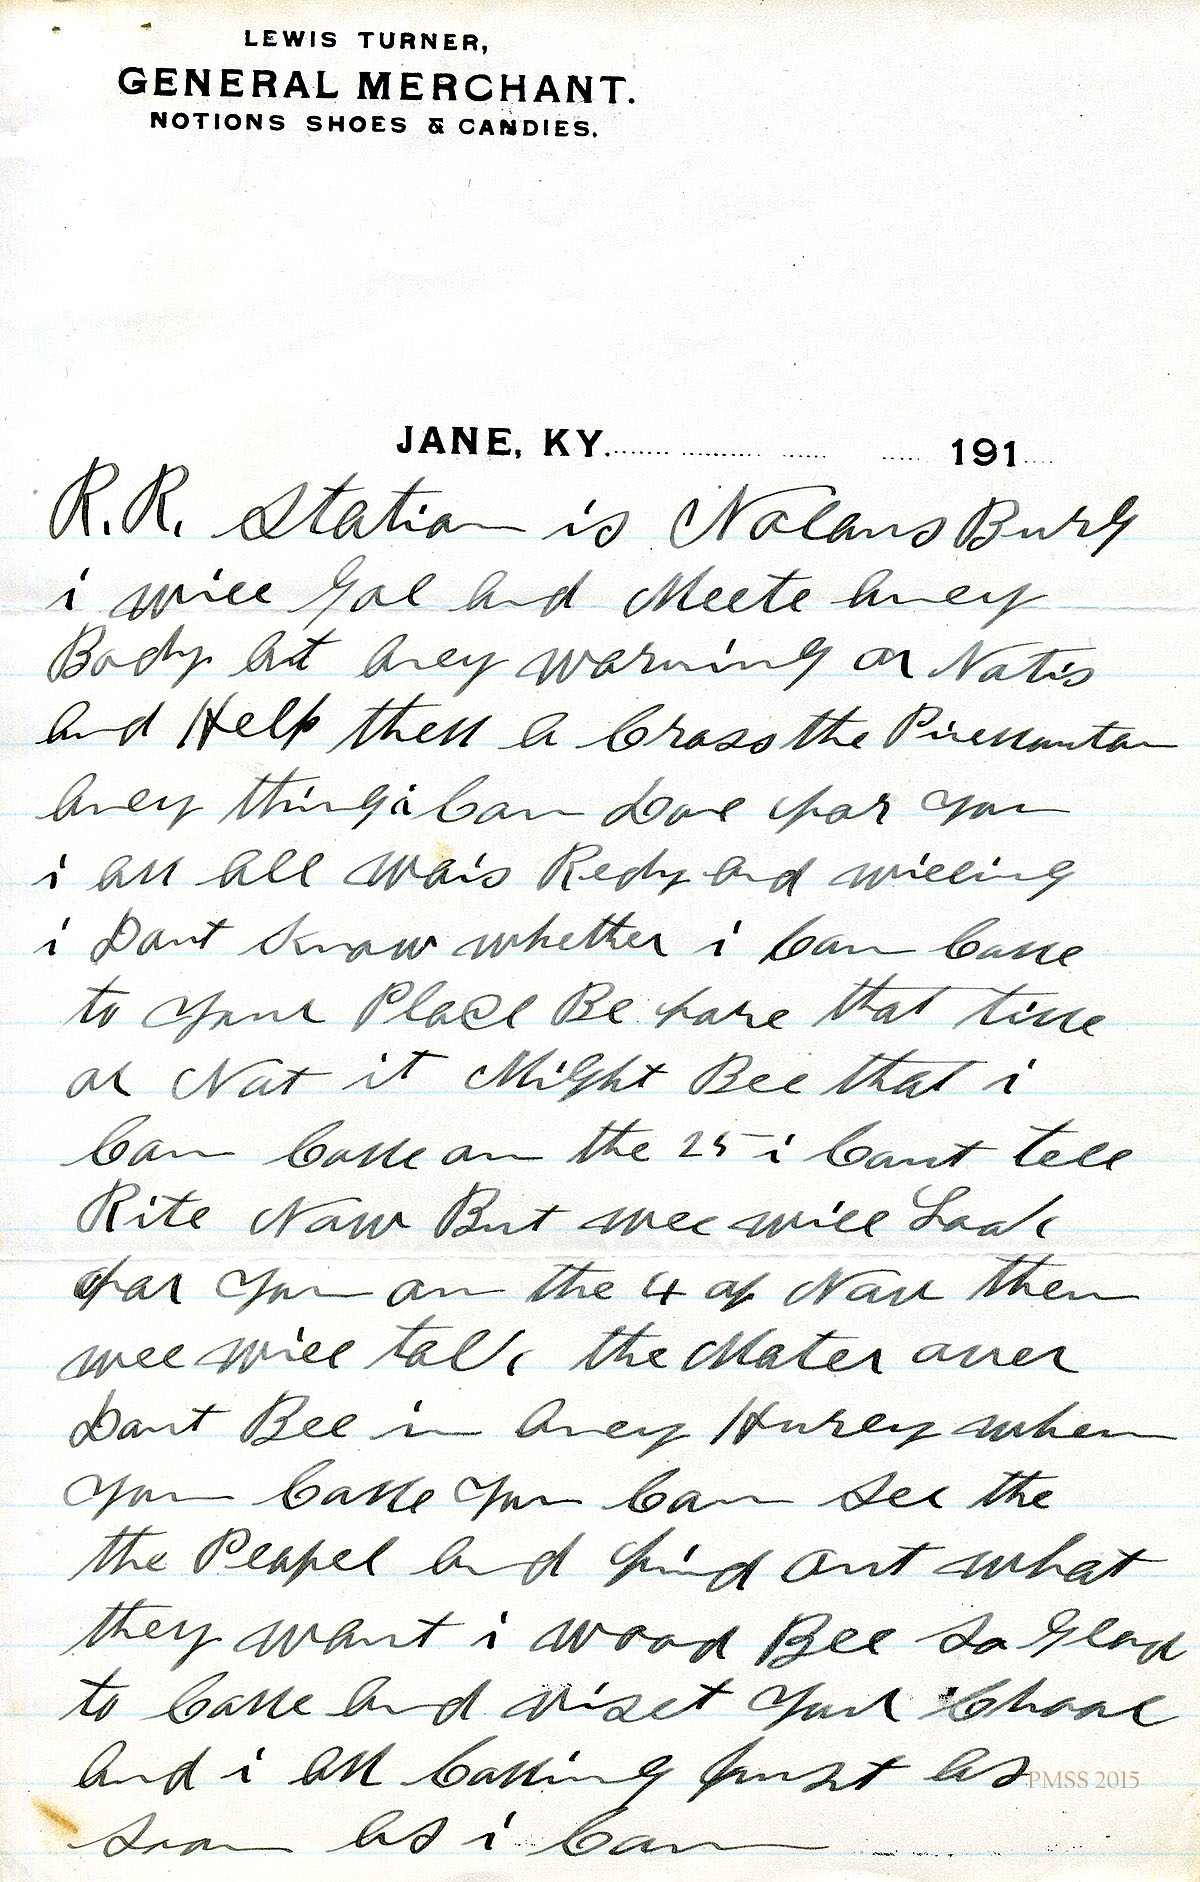 LEWIS TURNER,
GENERAL MERCHANT.
NOTIONS SHOES & CANDIES.
JANE, KY. 191
R.R. Station is Nolans Burg
i will Goe and Meete aney
Body at aney warning or Notis
and Help them a Cross the Pinemountan
aney thing i Can Doe for you
i am all wais Redy and willing
i Dont know whether i Can Come
to your Place Be fore that time
or Not it Might Bee that i
Can Come on the 25 i Cant tell
Rite Now But wee will Look
for you on the 4 of Nov then
wee will talk the Mater over
Dont Bee in aney Hurey when
you Come you Can See the
the Peapel and find out what
they want i wood Bee So Glad
to Come and viset your Chool
and i am Coming just as
Soon as i Can
PMSS 2015